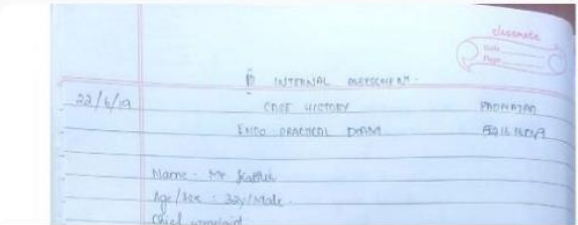 classmate
Date
Page
INTERNAL ASSESSMENT.
22/6/19 CASE HISTORY
ENDO PRACTICAL EXAM
Name - Mr Karthik
Age/Sex : 32y/Male.
Chief complaint